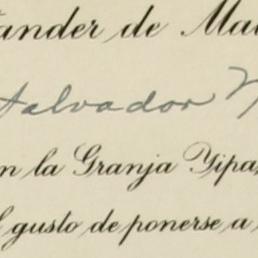 ander de Ma
Salvador
n la Granja Yipa
l gusto de ponerse a